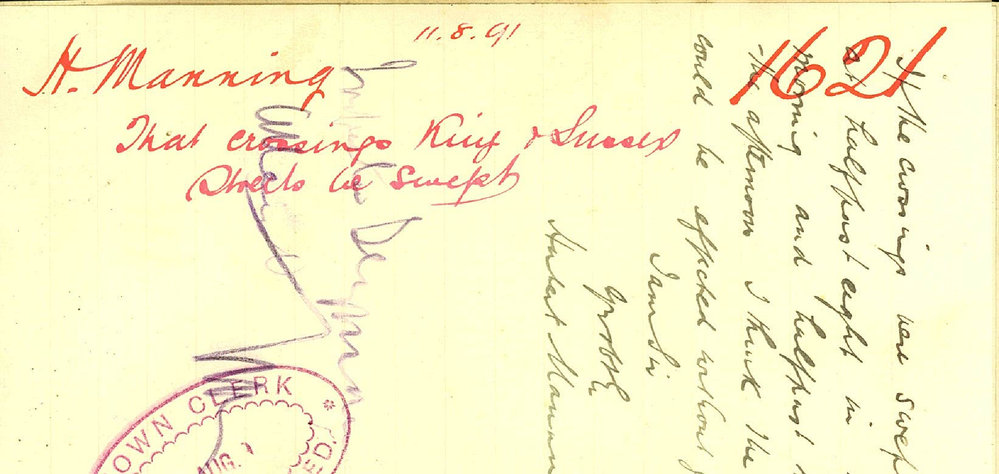 11.8.91
1621
H. Manning
That crossings King & Sussex
Streets be swept
If the crossings were swep
at halfpast eight in
morning and halfpast
the afternoon I think the
could be effected without
I am Sir
Yrs obdtly
Herbert Mannin
TOWN CLERK
AUG.